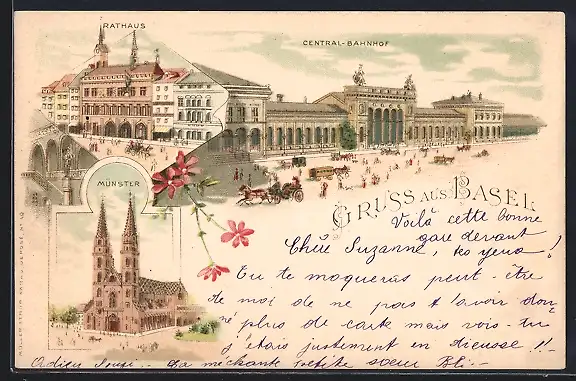 RATHAUS
CENTRAL-BAHNHOF
MÜNSTER
GRUSS AUS BASEL
Voilà cette bonne
gare devant
Chère Suzanne, les yeux!
Tu te moqueras peut-être
de moi de ne pas t'avoir don
né plus de carte mais vois-tu
j'étais justement en !!
Adieu Ta méchante petite sœur